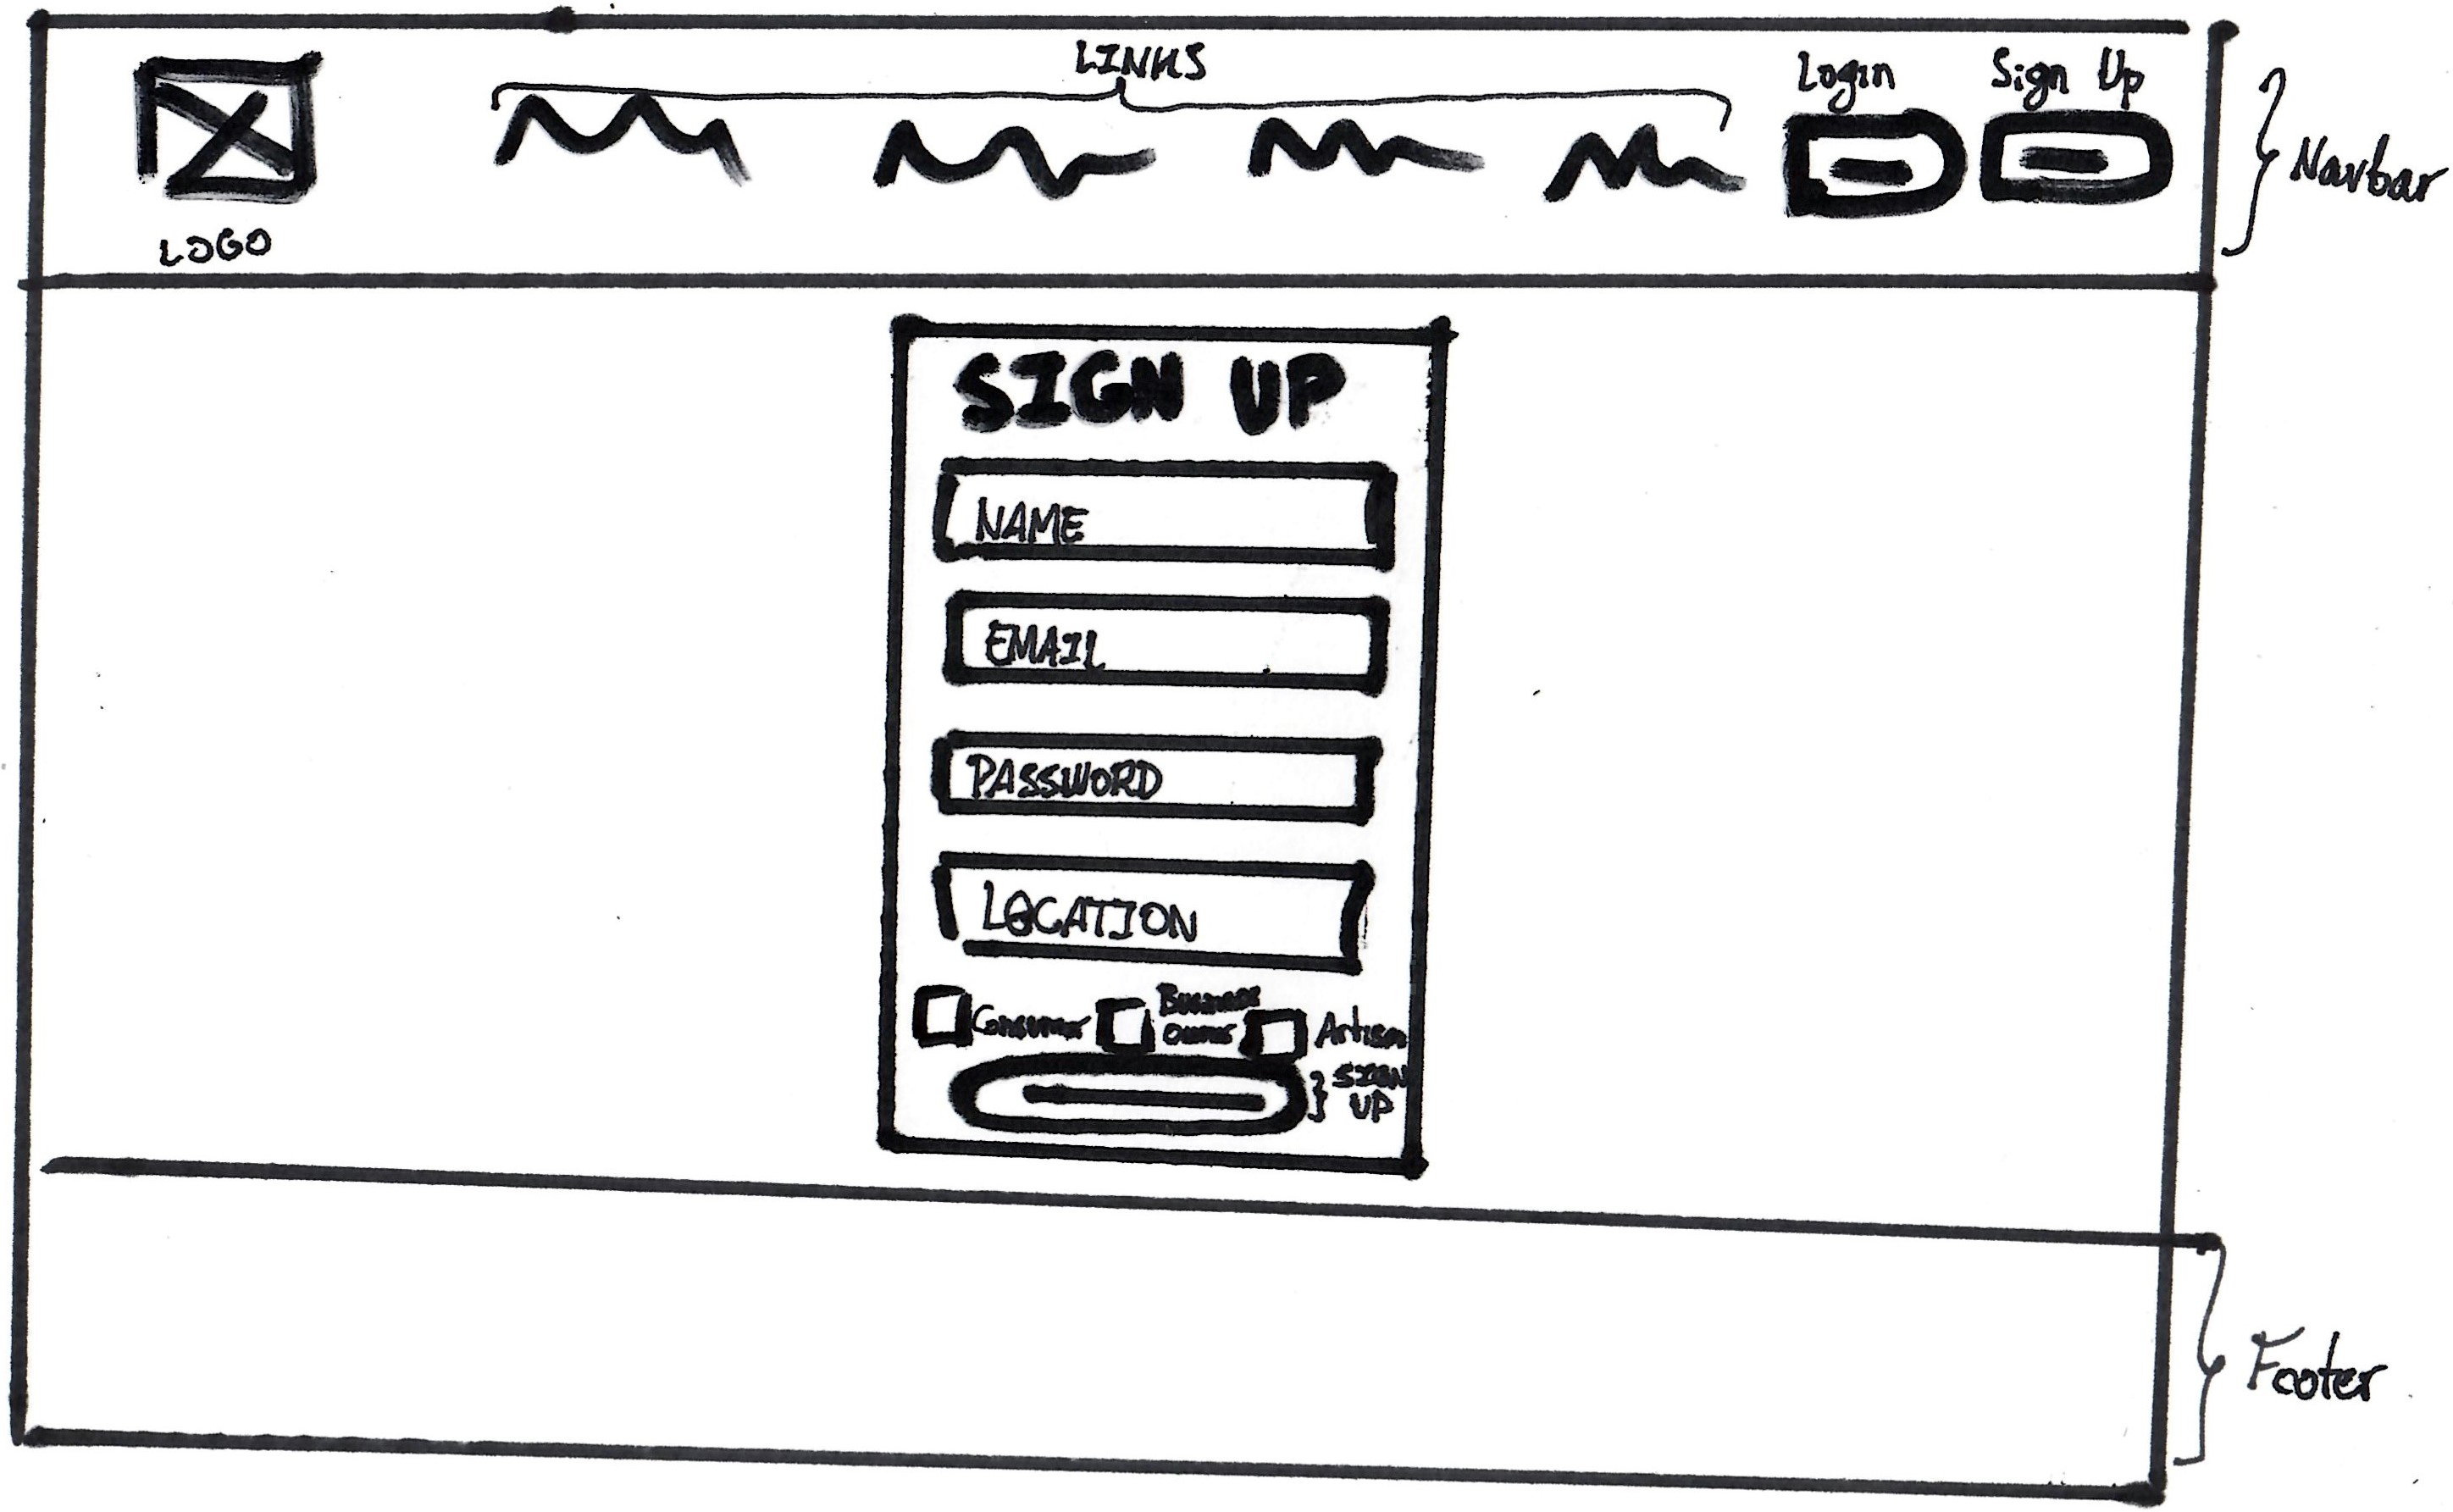 LINKS
Login
Sign Up
Navbar
LOGO
SIGN UP
NAME
EMAIL
PASSWORD
LOCATION
Consumer
Business
Owner
Artisan
SIGN
UP
Footer